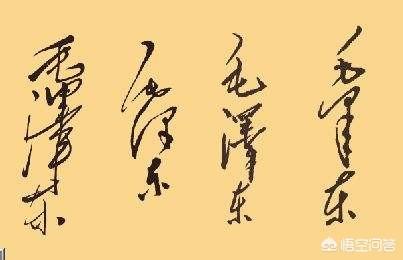 毛泽东
毛泽东
毛澤东
毛泽东
悟空问答